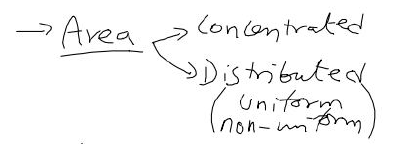 → Area → Concentrated
→ Distributed
(uniform
non-uniform)